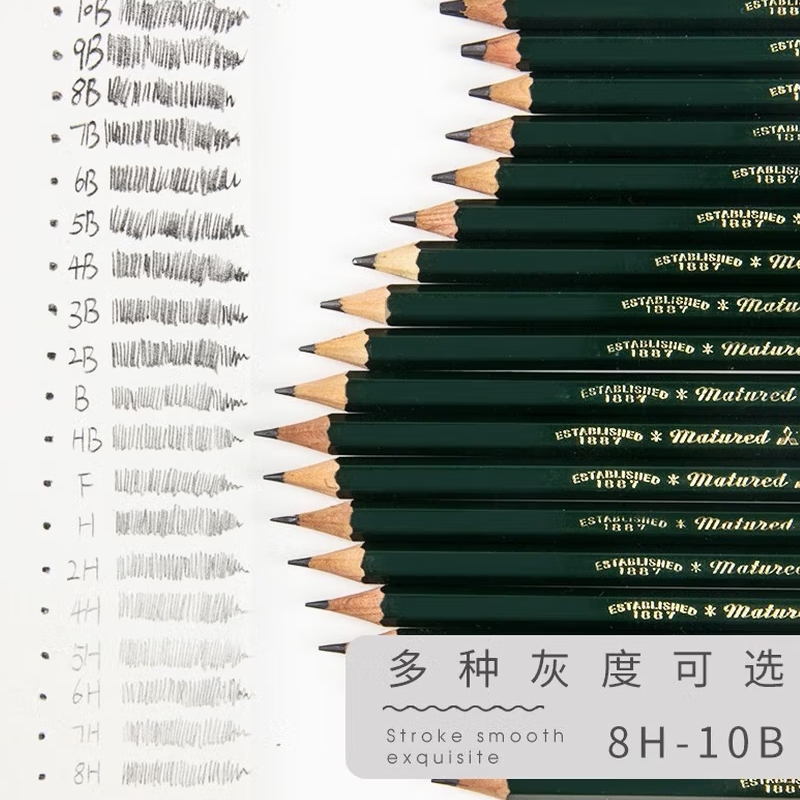 10B
9B
8B
7B
6B
5B
4B
3B
2B
B
HB
F
H
2H
4H
5H
6H
7H
8H
ESTABLISHED
1887
ESTABLISHED
1887
ESTABLISHED
1887
ESTABLISHED
1887
ESTABLISHED
1887 * Matu
ESTABLISHED
1887 * Matured
ESTABLISHED
1887 * Matured
ESTABLISHED
1887 * Matured
ESTABLISHED
1887 * Matured
ESTABLISHED
1887 * Matured
ESTABLISHED
1887 * Matured
ESTABLISHED
1887 * Matured
多种灰度可选
Stroke smooth
exquisite
8H-10B